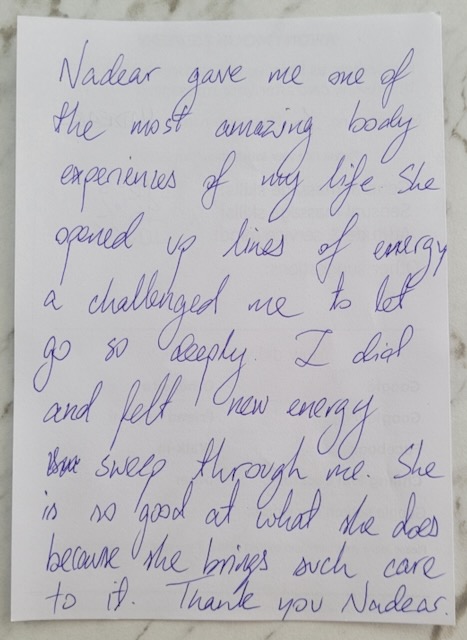 Nadear gave me one of
the most amazing body
experiences of my life She
opened up lines of energy
a challenged me to let
go so deeply. I did
and felt new energy
sweep through me. She
is so good at what she does
because she brings such care
to it. Thank you Nadear.